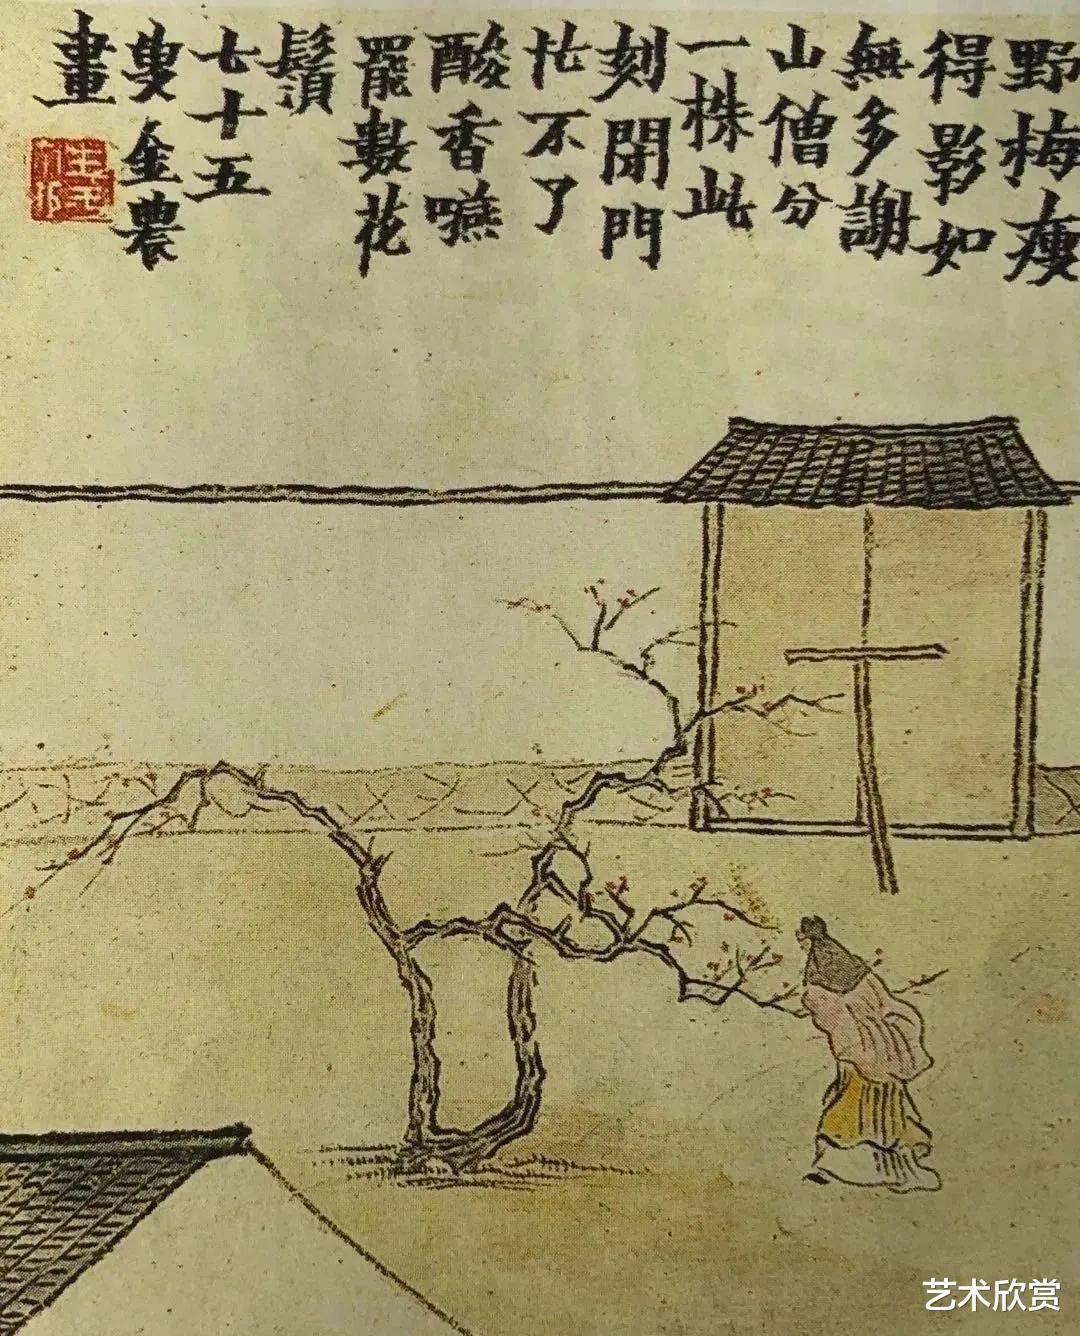 野梅瘦
得影如
無多謝
山僧分
一株此
刻閉門
忙不了
酸香嚥
罷數花
鬚
七十五
叟金農
畫
艺术欣赏